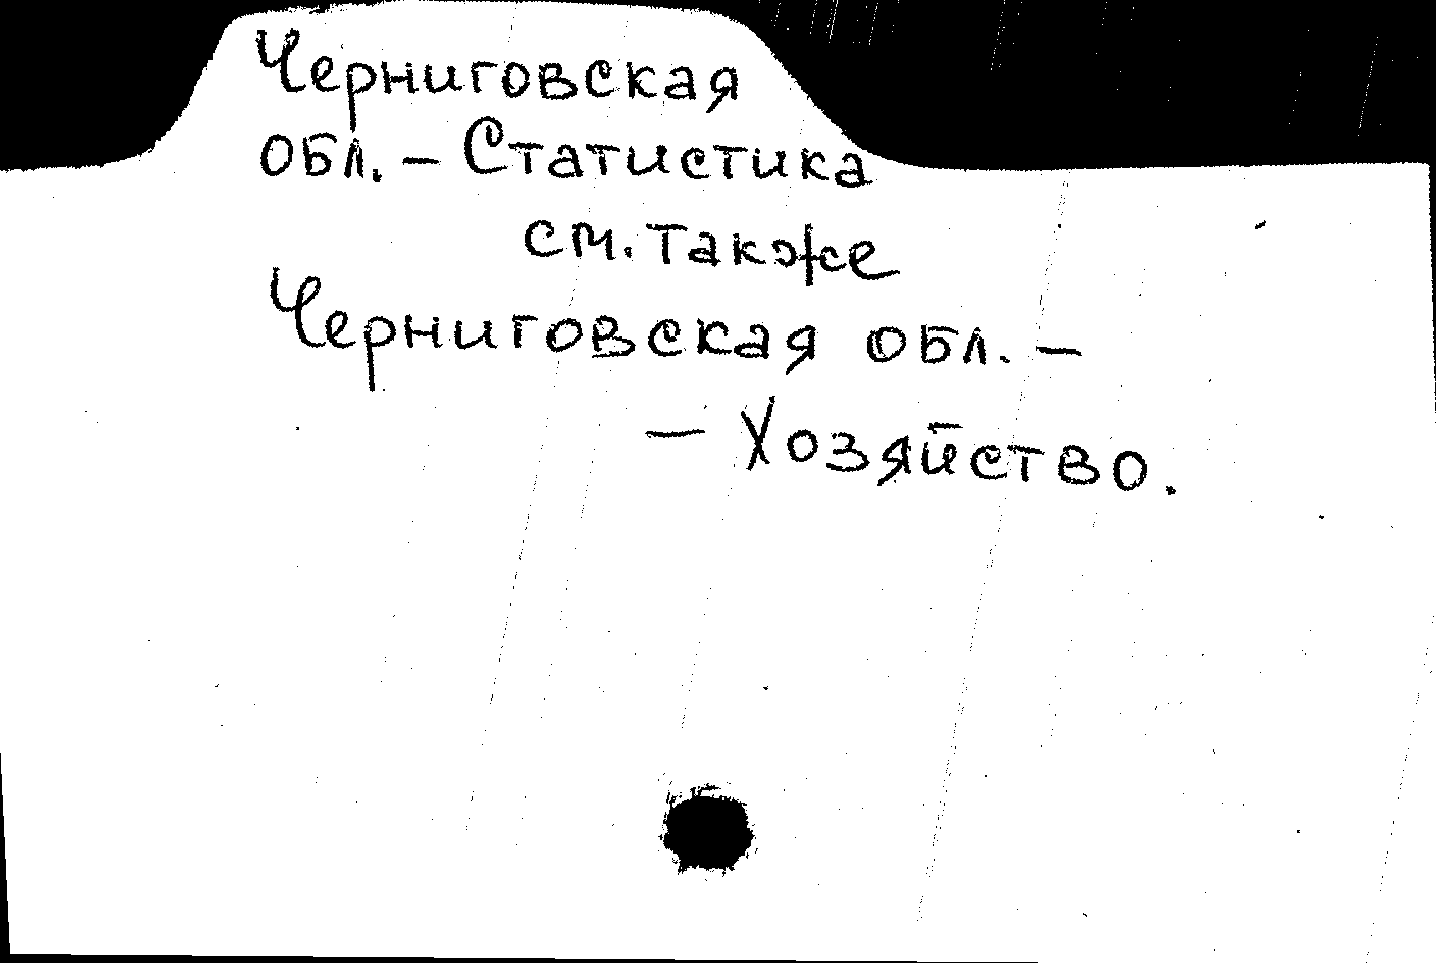 Черниговская
обл. – Статистика
см. также
Черниговская обл. –
– Хозяйство.